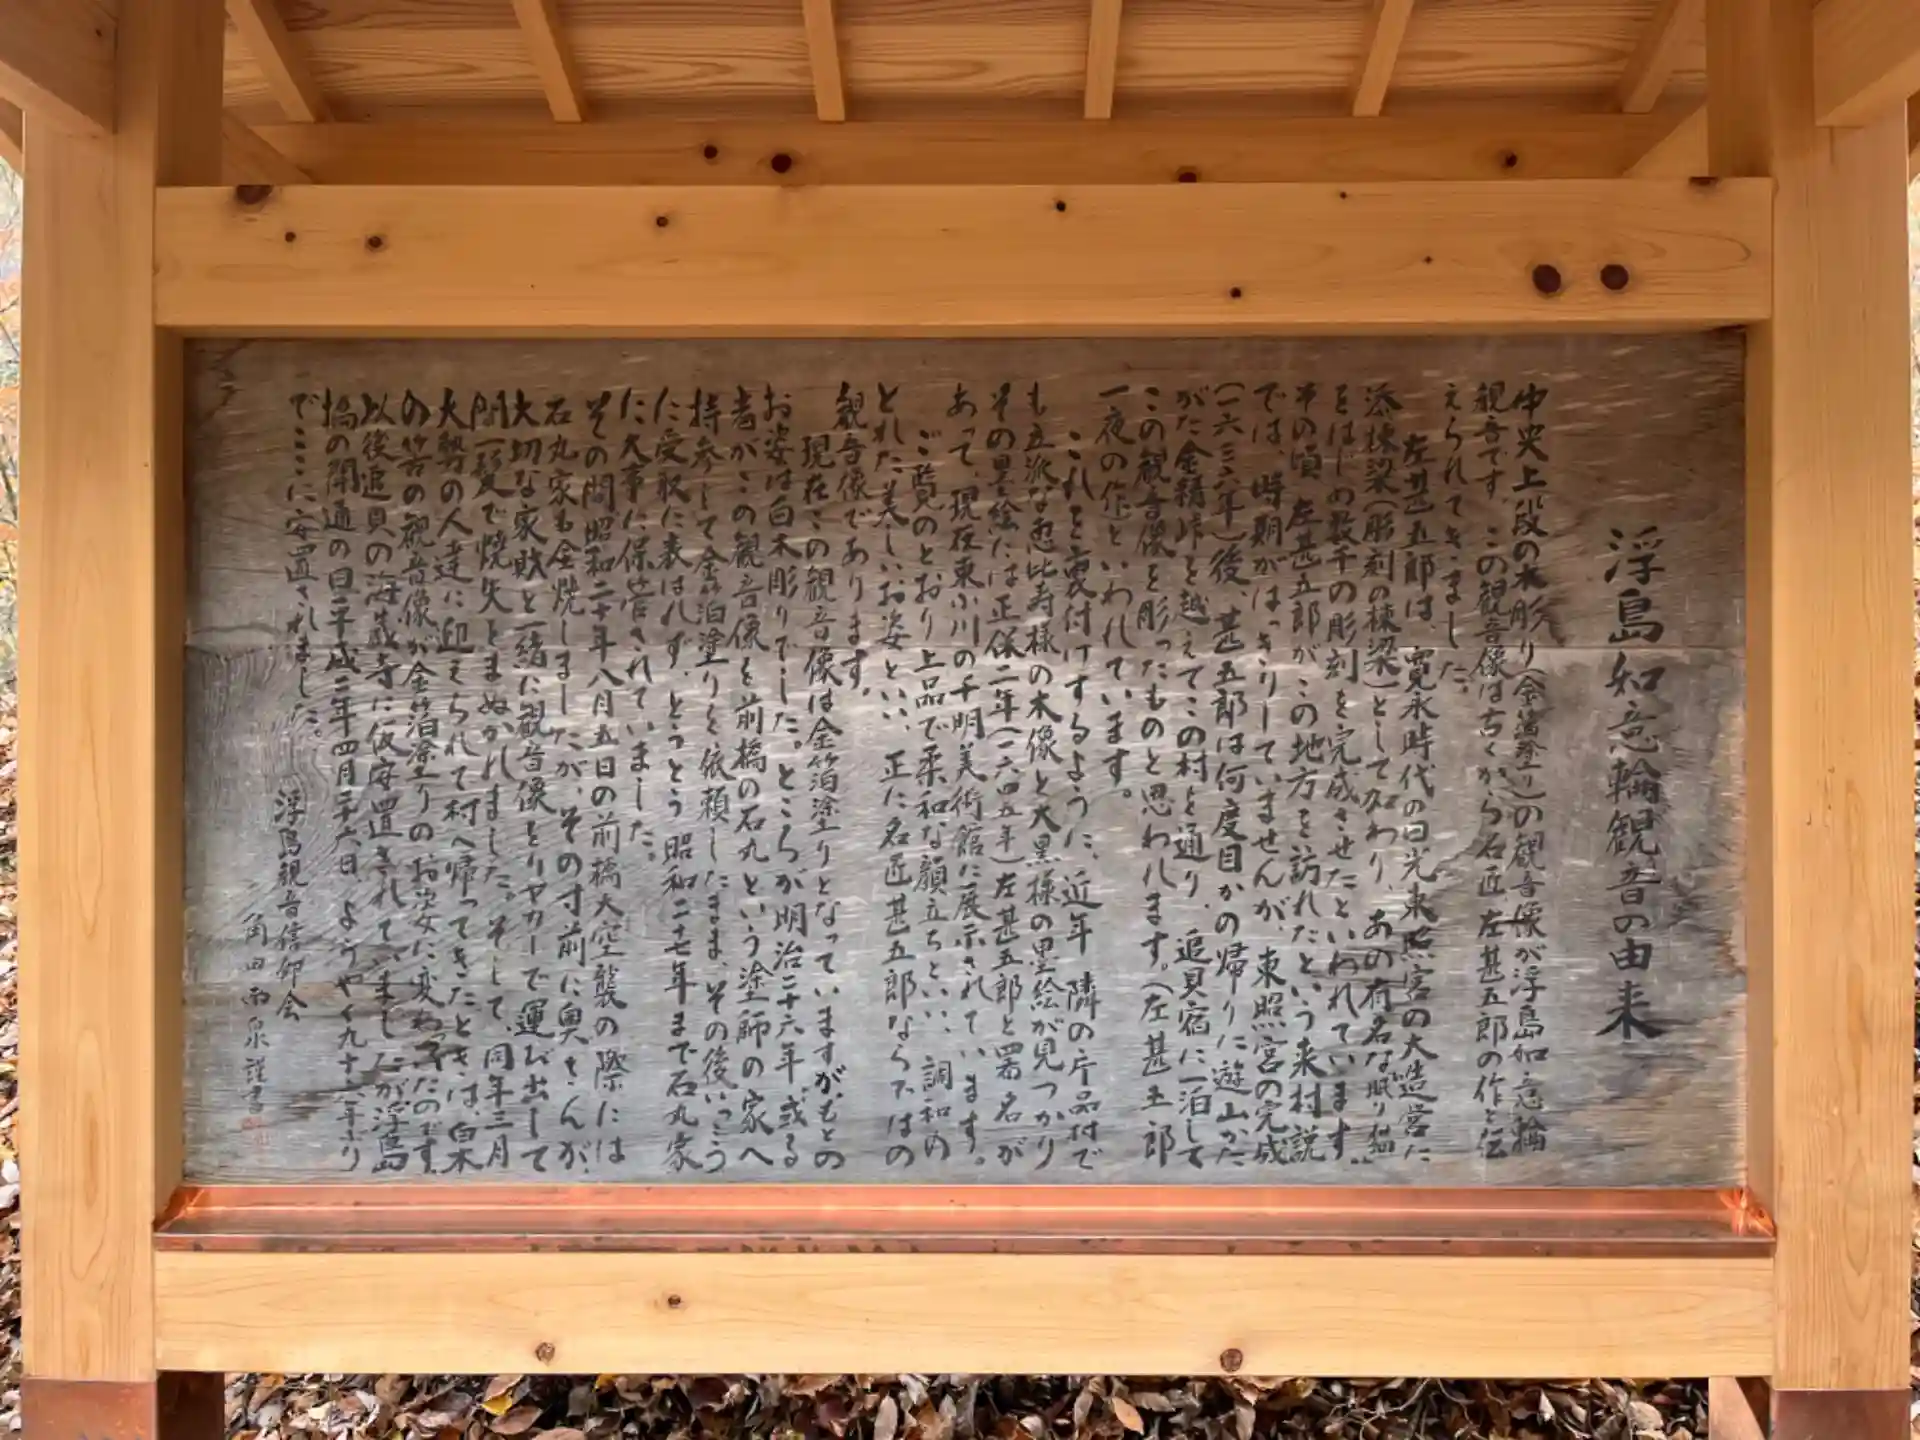 浮島如意輪観音の由来
中央上段の木彫り(金箔塗り)の観音像が浮島如意輪
観音です。この観音像は古くから名匠、左甚五郎の作と伝
えられてきました。
左甚五郎は、寛永時代の日光東照宮の大造営に
添棟梁(彫刻の棟梁)として加わり、あの有名な眠り猫
をはじめ数千の彫刻を完成させたといわれています。
その頃、左甚五郎がこの地方を訪れたという来村説
では、時期がはっきりしていませんが、東照宮の完成
(一六三六年)後、甚五郎は何度目かの帰りに遊山かた
がた金精峠を越えてこの村を通り、追貝宿に一泊して
この観音像を彫ったものと思われます。(左甚五郎
一夜の作といわれています。
これを裏付けするように、近年 隣の片品村で
も立派な恵比寿様の木像と大黒様の墨絵が見つかり
その墨絵には正保二年(一六四五年)左甚五郎と署名が
あって、現在東小川の千明美術館に展示されています。
ご覧のとおり上品で柔和な顔立ちといい、調和の
とれた美しいお姿といい、正に名匠甚五郎ならではの
観音像であります。
現在この観音像は金箔塗りとなっていますが、もとの
お姿は白木彫りでした。ところが明治二十六年、或る
者がこの観音像を前橋の石丸という塗師の家へ
持参して金箔塗りを依頼したまま、その後いっこう
に受取に表はれず、とうとう昭和二十七年まで石丸家
に大事に保管されていました。
その間昭和二十年八月五日の前橋大空襲の際には
石丸家も全焼しましたが、その寸前に奥さんが、
大切な家財と一緒に観音像をリヤカーで運び出して
間一髪で焼失をまぬかれました。そして、同年三月
大勢の人達に迎えられて村へ帰ってきたときは、白木
の筈の観音像が金箔塗りのお姿に変わったのです。
以後追貝の海蔵寺に仮安置されていましたが浮島
橋の開通の日平成二年四月二十六日、ようやく九十六年ぶり
でここに安置されました。
浮島観音信仰会
角田雨泉謹書